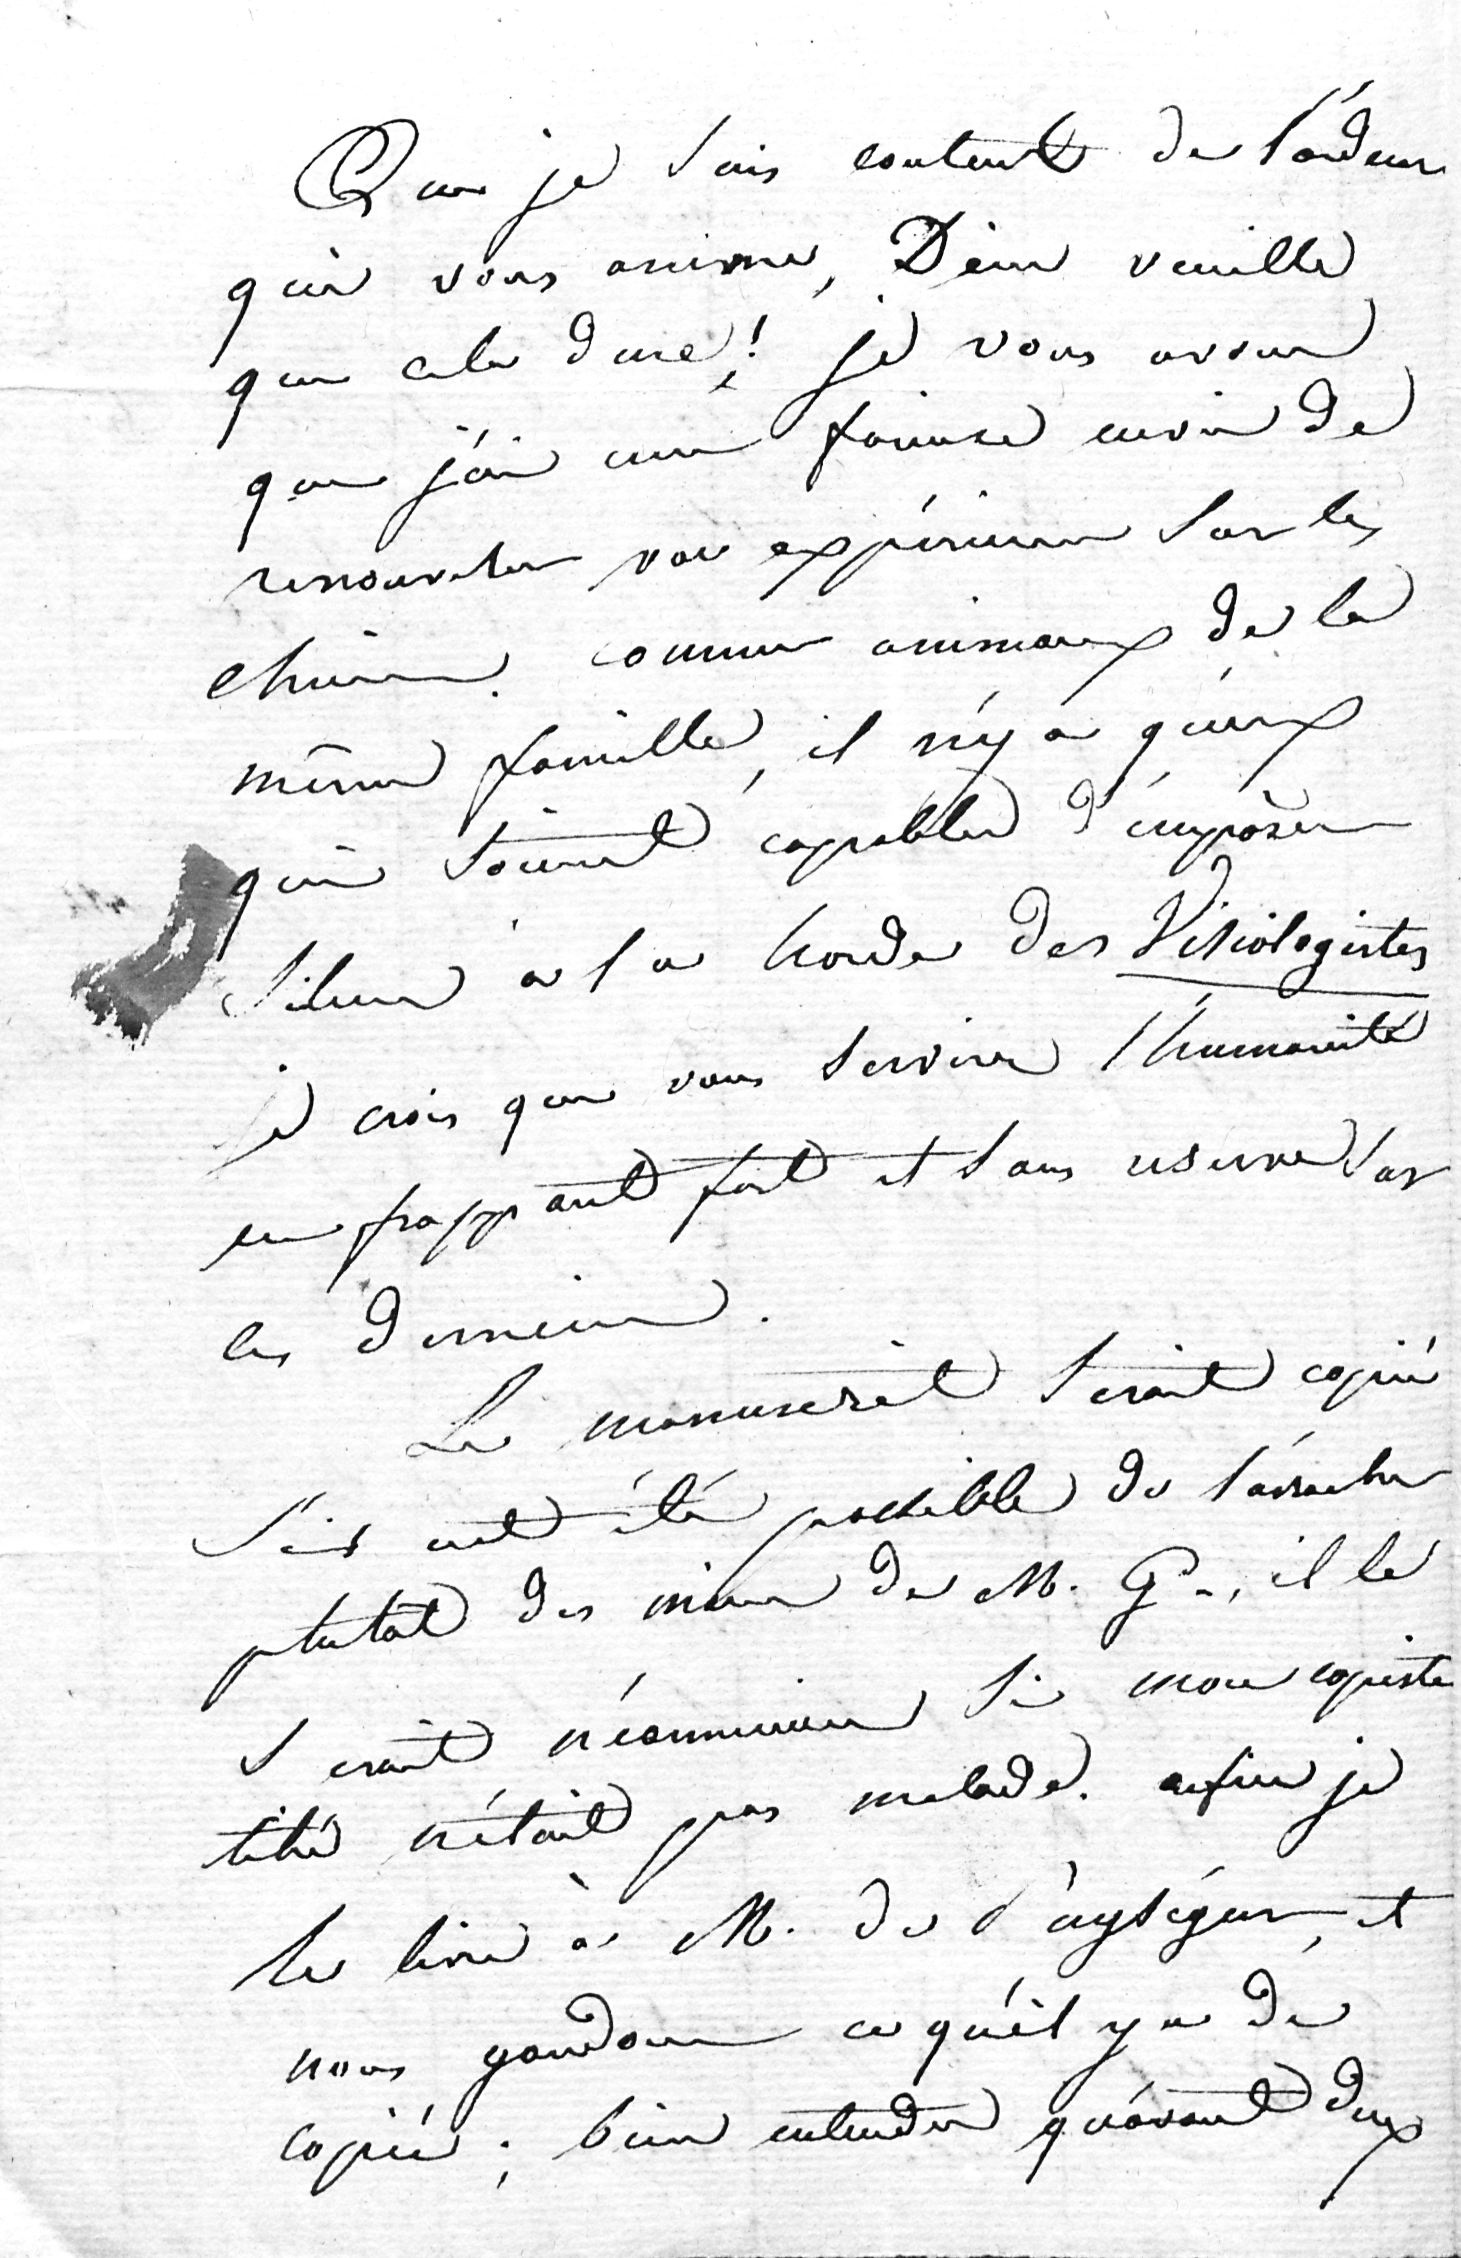 Que je suis content de l'ardeur
qui vous anime, Dieu veuille
que cela dure! je vous avoue
que j'ai une furieuse envie de
renouveler vos expériences sur les
chiens. comme animaux de la
même famille, il n'y a qu'eux
qui soient capables d'imposer
silence à la horde des Visiologistes
je crois que vous servirez l'humanité
en frappant fort et sans réserve sur
ces derniers.
Le manuscrit serait copié
s'il eut été possible de l'arracher
plutot des mains de M. G., il le
serait néanmoins si mon copiste
n'était pas malade. enfin je
le livre à M. de Puységur, et
nous gardons ce qu'il y a de
copié; bien entendu qu'avant deux